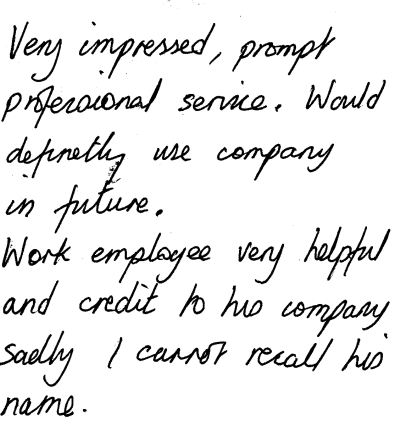 Very impressed, prompt
professional service. Would
definetly use company
in future.
Work employee very helpful
and credit to his company
sadly I cannot recall his
name.